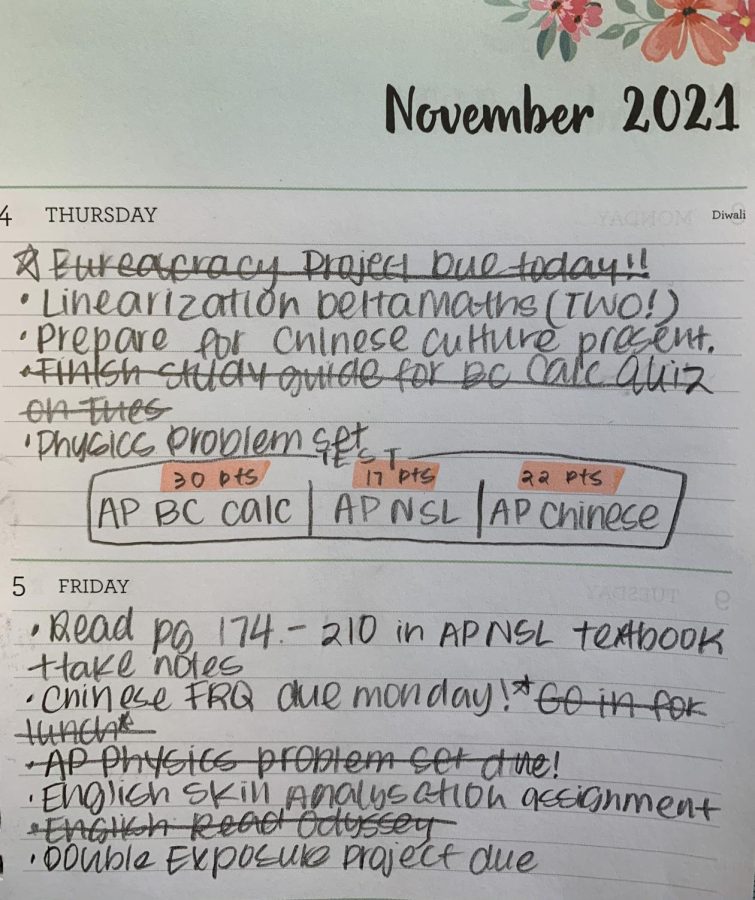 November 2021
4 THURSDAY Diwali
☆ Eureacracy Project Due today!!
• Linearization Deltamaths (TWO!)
• Prepare for Chinese culture present.
• Finish study guide for BC Calc Quiz
on Tues
• Physics problem set
TEST
30 pts 17 pts 22 pts
AP BC Calc | AP NSL | AP Chinese
5 FRIDAY
• Read pg 174. - 210 in AP NSL textbook
+take notes
• Chinese FRQ due monday! *Go in for
lunch*
• AP Physics problem set due!
• English Skin Analysation assignment
• English Read Odyssey
• Double Exposure project due